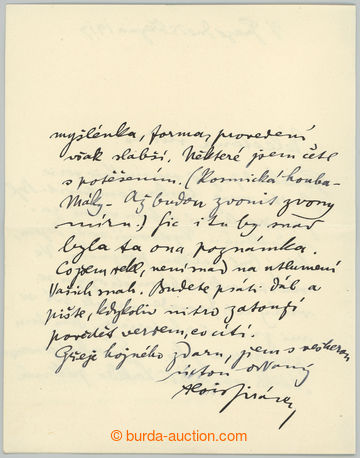 myšlénka, forma, provedení
však slabší. Některé jsem četl
s potěšením. (Kosmická houba-
Mály- Až budou zvonit zvony
míru.) Sic i tu by snad
byla ta ona poznámka.
Co jsem řekl, není snad na utlumení
Vašich snah. Budete psáti dál a
pište, kdykoliv nitro zatouží
povědět veršem, co cítí.
Přeje hojného zdaru, jsem s veškerou
úctou oddaný
Alois Jirásek
burda-auction.com